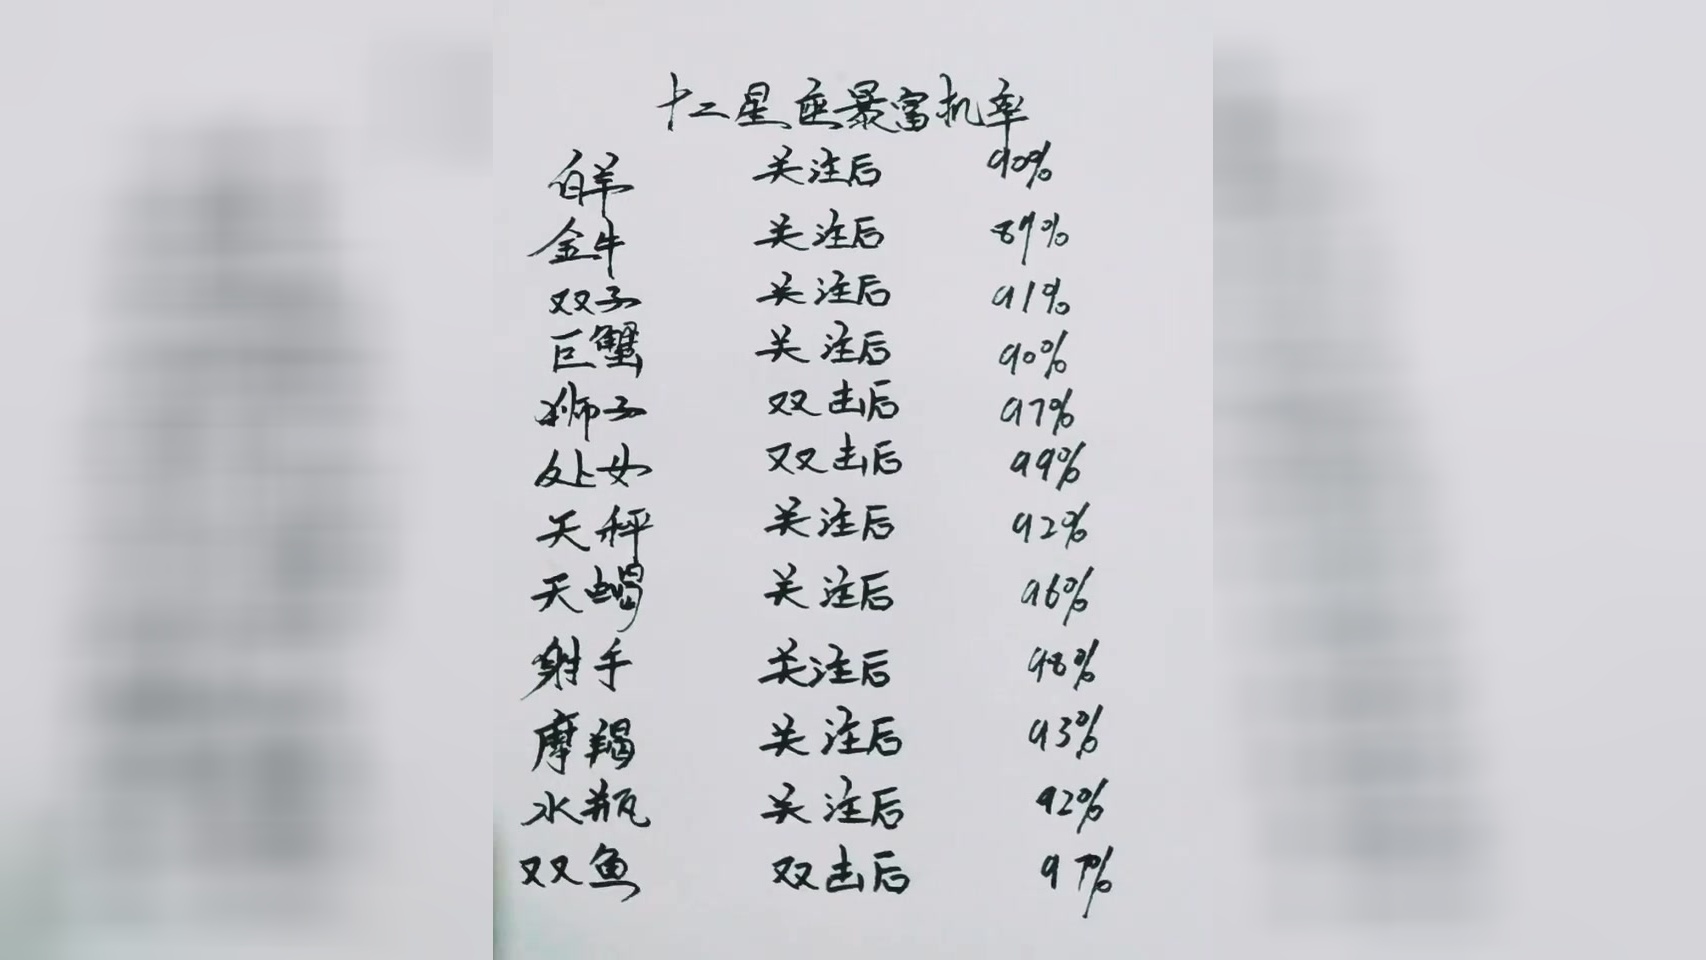 十二星座暴富机率
白羊 关注后 90%
金牛 关注后 89%
双子 关注后 91%
巨蟹 关注后 90%
狮子 双击后 97%
处女 双击后 99%
天秤 关注后 92%
天蝎 关注后 96%
射手 关注后 98%
摩羯 关注后 93%
水瓶 关注后 92%
双鱼 双击后 97%